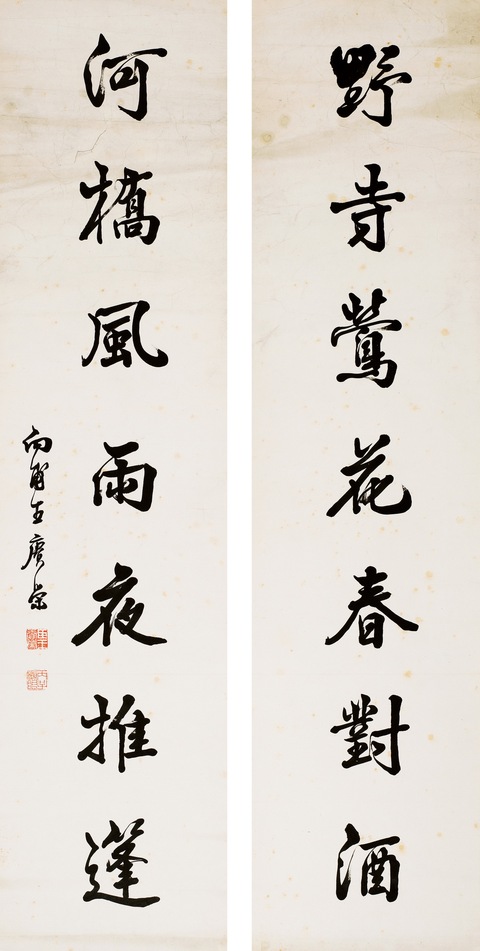 野寺鶯花春對酒
河橋風雨夜推篷
向甫王賡榮